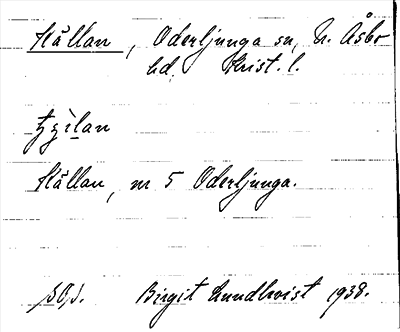 Källan, Oderljunga sn, N. Åsbo
hd. Krist. l.
Källan, nr 5 Oderljunga.
Birgit Lundkvist 1938.